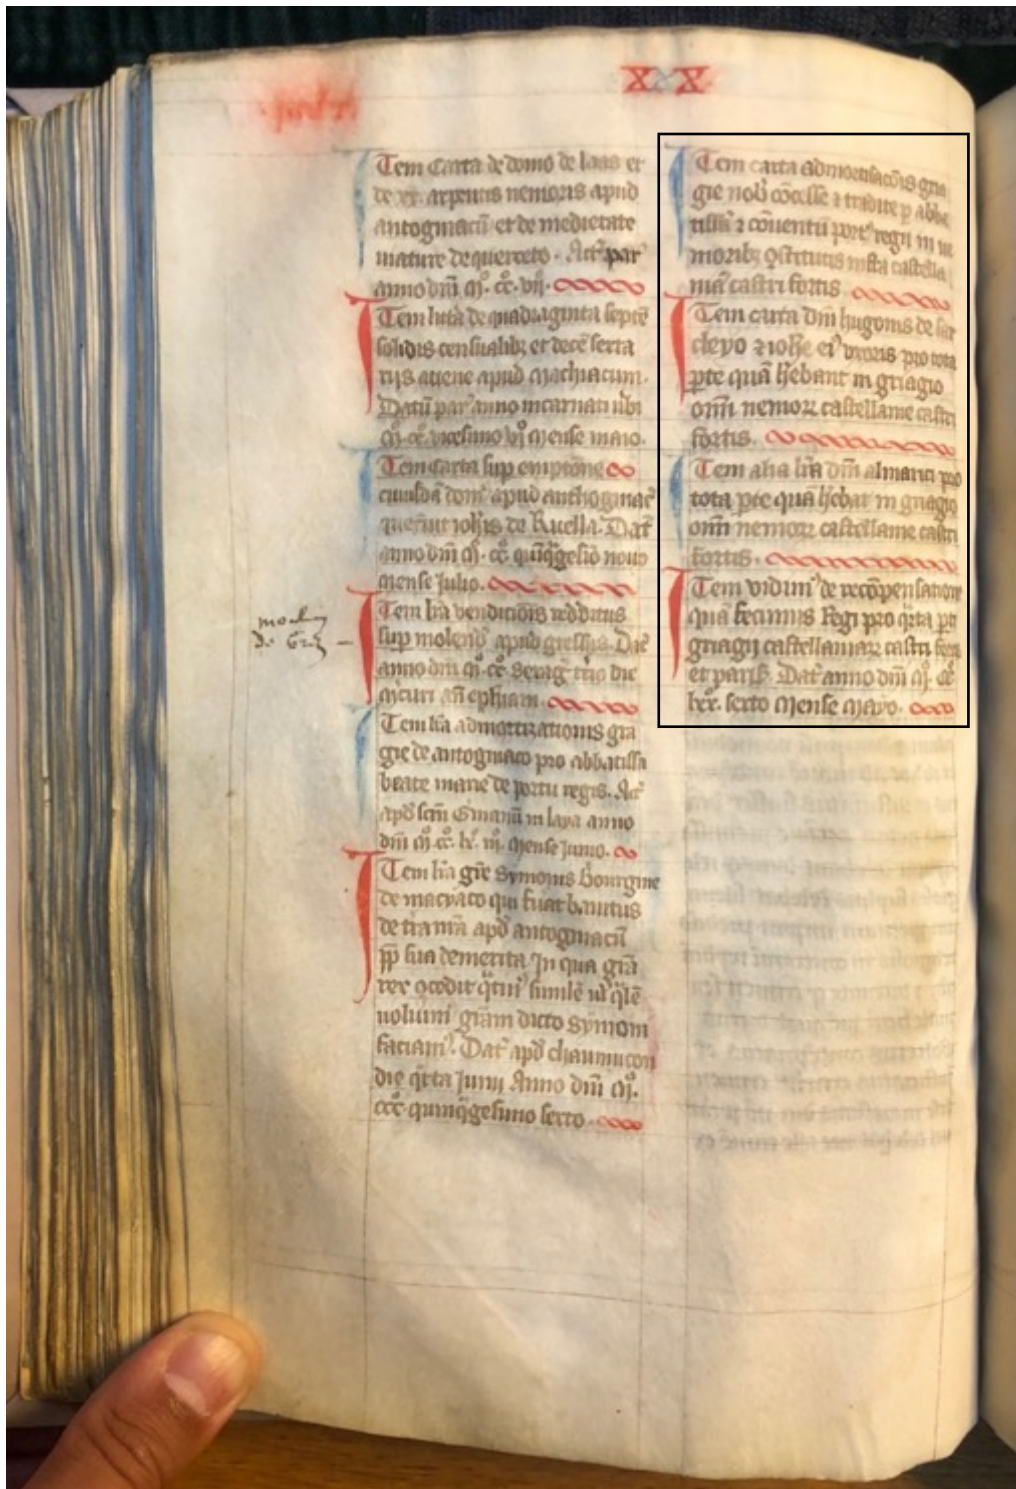 XX
Tem Carta de domo de laas et
de xx. arpentis nemoris apud
antogniacū et de medietate
mature de querceto. Act̄ par̄
anno dn̄i mͦ. ccͦ. vij.
Tem litt̄a de quadraginta septē
solidis censualibꝫ et decē serta
rijs auene apud Machiacum.
Datū par̄ anno incarnati ūbi
mͦ. ccͦ. vicesimo vjͦ mense maio.
Tem carta sup emptōne
cuiusdā dom᷒ apud anthogniac̄
que fuit ioħis de Ruella. Dat̄
anno dn̄i mͦ. ccͦ. quīq̄gesīo nono
mense Julio.
Tem lr̄a vendicōis redditus
sup molend̄ apud gressus. Dat̄
anno dn̄i mͦ. ccͦ. sexaḡ t̄cio die
m̄curi an̄ epħiam.
molin
de Grez
Tem lr̄a admortizationis gra
gie de antogniaco pro abbatissa
beate marie de portu regis. Act̄
apd̄ scm̄ Gmanū in laya anno
dn̄i mͦ. ccͦ. lx. iijͦ. mense junio.
Tem lr̄a gr̄e Symonis Bourgine
de macyaco qui fuat banitus
de t̄ra nr̄a apd̄ antogniacū
pp̄ sua demerita In qua grā
rex ꝯcedit
uoluim᷒ grām dicto Symoni
faciam᷒. Dat̄ apd̄ chaumucon
die q̄rta Junij Anno dn̄i mͦ.
cccͦ. quinq̄gesimo sexto.
Tem carta admortisacōis gna
gie nob̄ cōcesse ⁊ tradite p abba
tissā ⁊ cōuentū port᷒ regij in ne
moribꝫ ꝯstitutis iuxta castella
niā castri fortis
Tem carta dn̄i hugonis de sar
cleyo ⁊ ioħe ei᷒ vxoris pro tota
ꝑte quā ħebant in gnagio
om̄i nemorꝝ castellanie castri
fortis.
Tem alia lr̄a dn̄i almarici pro
tota ꝑte quā ħebat in gnagio
om̄i nemorꝝ castellanie castri
fortis.
Tem vidim᷒ de recōpensatione
quā fecimus Regi pro q̄rta pte
gnagij castellaniarꝝ castri fortis
et paris̄. Dat̄ anno dn̄i mͦ. ccͦ
lxx. sexto Mense Mayo.